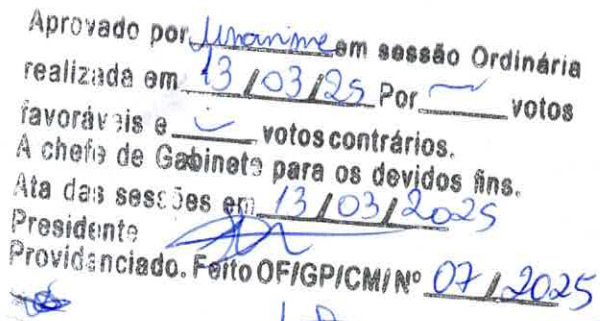 Aprovado por unanime em sessão Ordinária
realizada em 13 / 03 / 25 Por ~ votos
favoráveis e ~ votos contrários.
A chefe de Gabinete para os devidos fins.
Ata das sessões em 13 / 03 / 2025
Presidente
Providenciado. Feito OF/GP/CM/Nº 07 / 2025